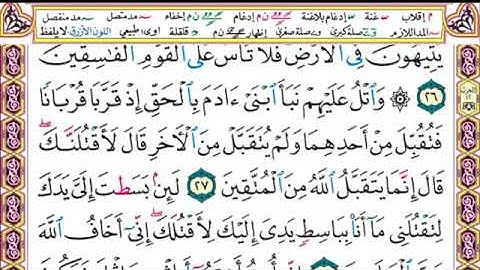 م إقلاب س غنة س إدغام بلاغنة س ن م إدغام س ن م إخفاء ~ مد متصل ~ مد منفصل
~ المد اللازم صلة كبرى و صلة صغرى إظهار ن م قلقلة اوى: طبيعي اللون الأزرق: لا يلفظ
يَتِيهُونَ فِى ٱلْأَرْضِ فَلَا تَأْسَ عَلَى ٱلْقَوْمِ ٱلْفَٰسِقِينَ
٢٦ ۞ وَٱتْلُ عَلَيْهِمْ نَبَأَ ٱبْنَىْ ءَادَمَ بِٱلْحَقِّ إِذْ قَرَّبَا قُرْبَانًا
فَتُقُبِّلَ مِنْ أَحَدِهِمَا وَلَمْ يُتَقَبَّلْ مِنَ ٱلْأَخَرِ قَالَ لَأَقْتُلَنَّكَ ۖ
قَالَ إِنَّمَا يَتَقَبَّلُ ٱللَّهُ مِنَ ٱلْمُتَّقِينَ ٢٧ لَئِنۢ بَسَطتَ إِلَىَّ يَدَكَ
لِتَقْتُلَنِى مَآ أَنَا۠ بِبَاسِطٍ يَدِىَ إِلَيْكَ لِأَقْتُلَكَ ۖ إِنِّىٓ أَخَافُ ٱللَّهَ